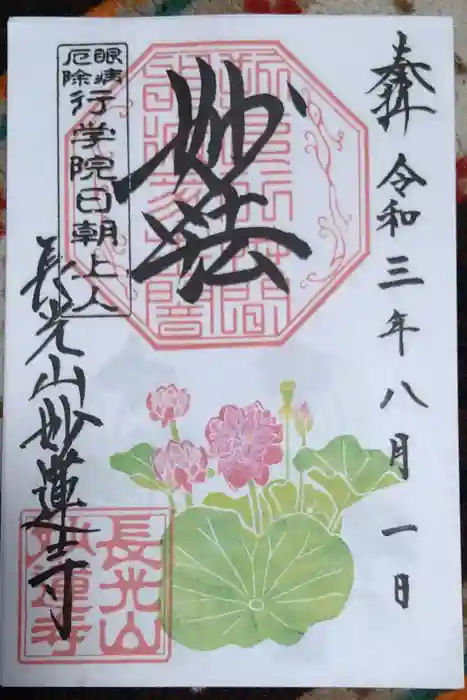 奉拝
令和三年八月一日
妙法
眼病
厄除
行学院日朝上人
長光山妙蓮寺
長光山
妙蓮寺